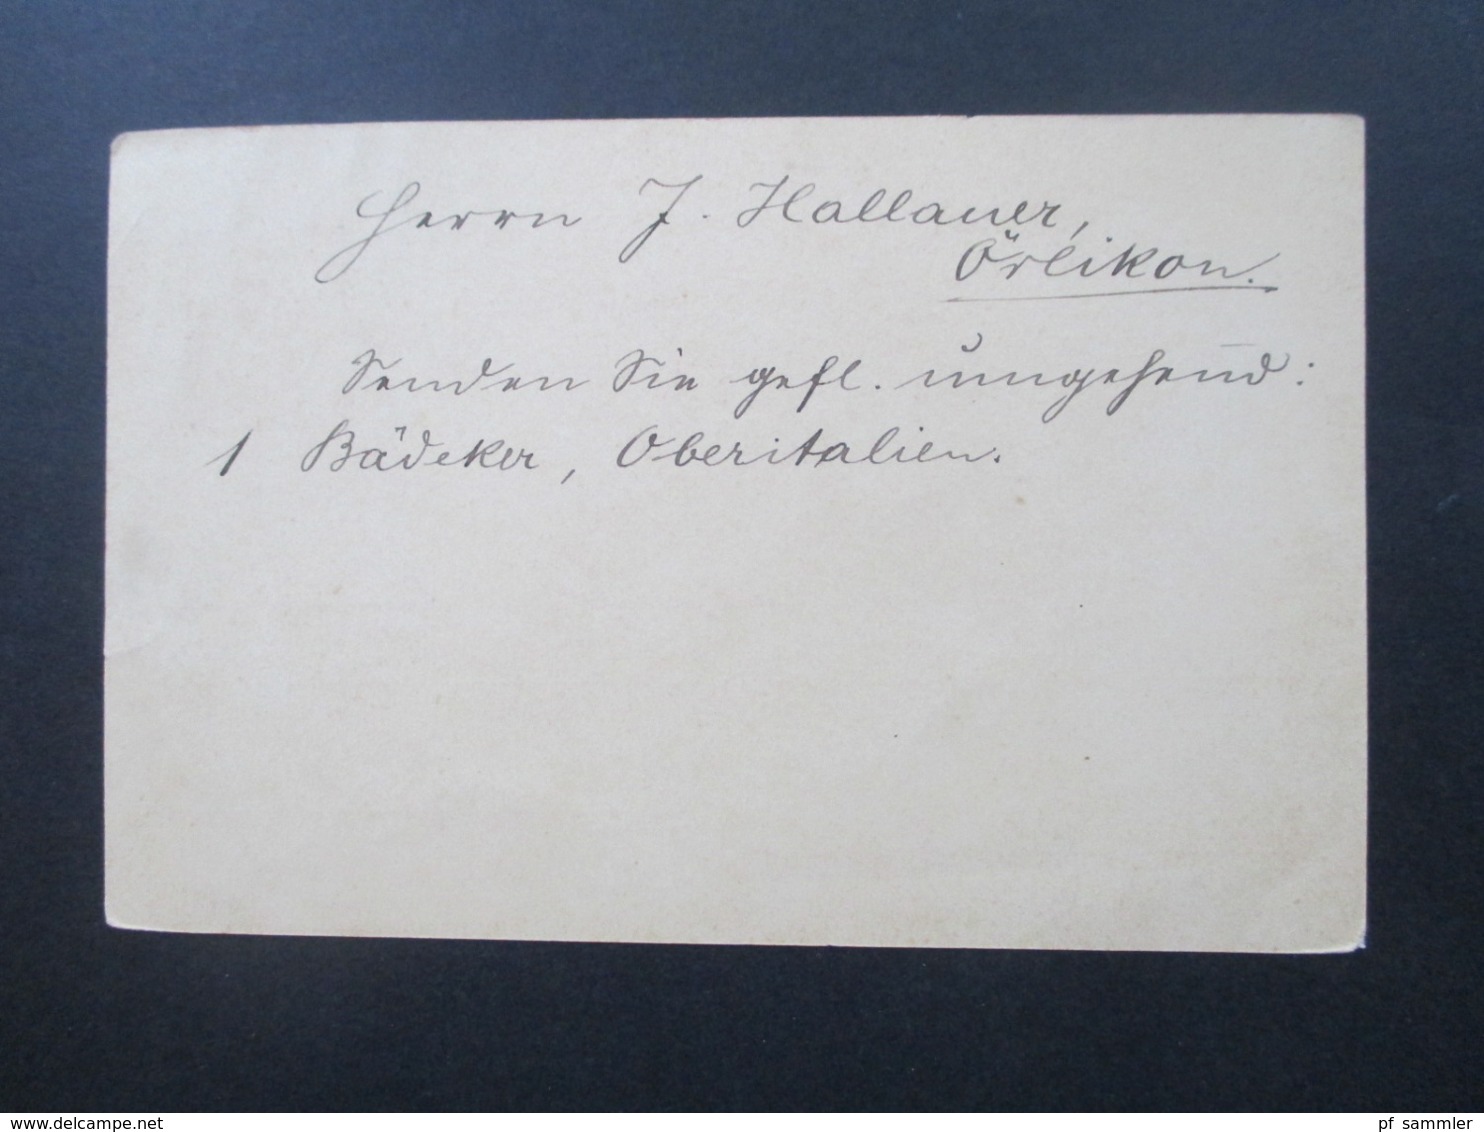 Herrn J. Hallauer,
Örlikon.
Senden Sie gefl. umgehend:
1 Bädeker, Oberitalien.
delcampe.net
pf_sammler